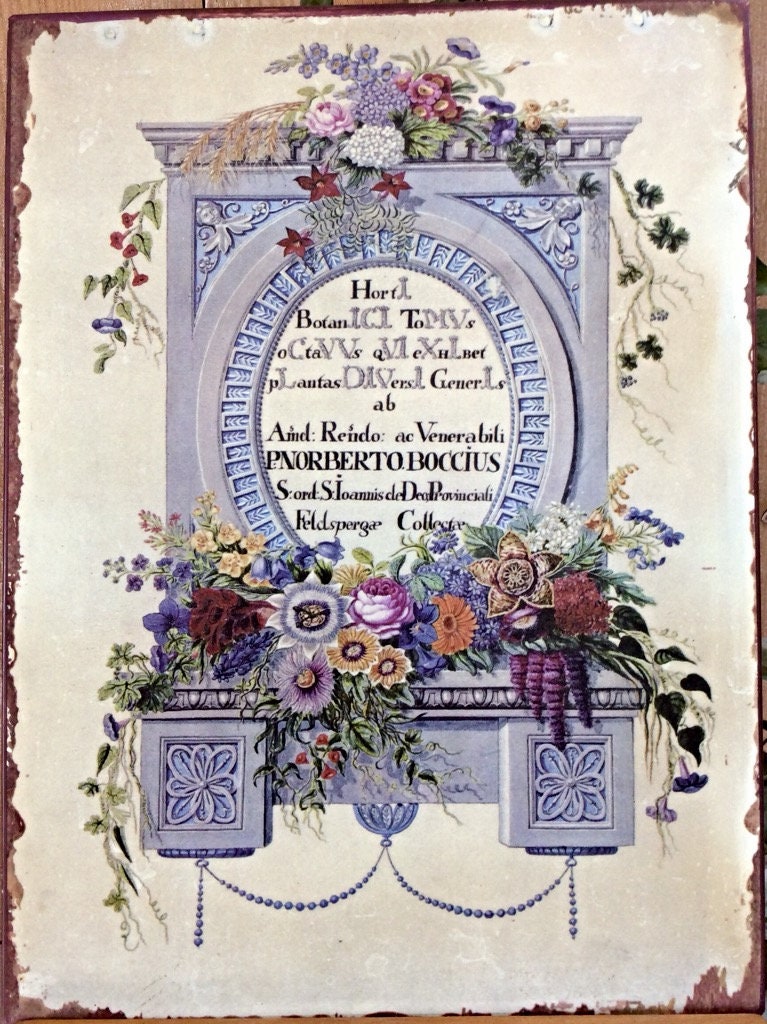 HortI
BotanICI ToMVs
oCtaVVs qVI eXHIBet
pLantas DIVersI GenerIs
ab
Am̃d: Reñdo: ac Venerabili
P.NORBERTO.BOCCIUS
S: ord: S: Ioannis de Deo, Provinciali
Feldspergæ Collectæ